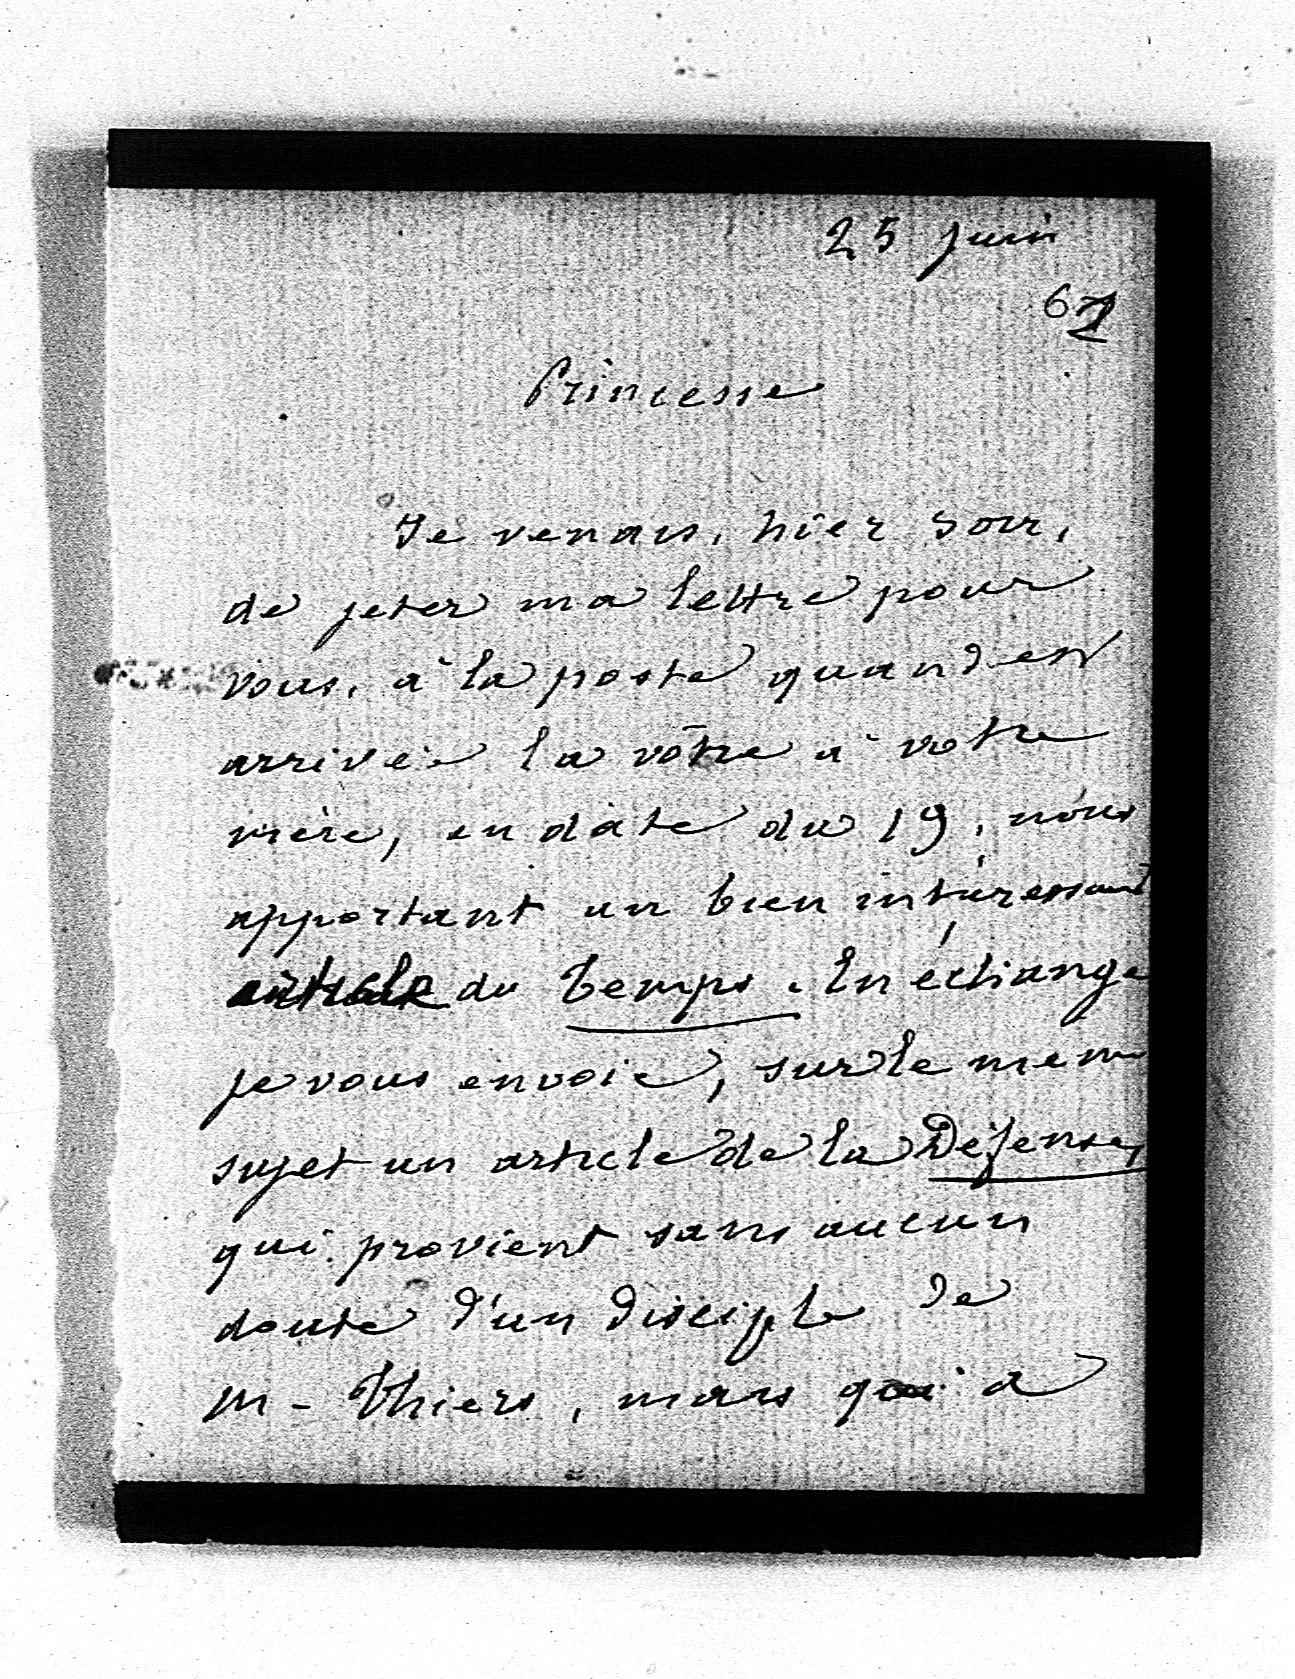 25 juin
Princesse
Je venais, hier soir,
de jeter ma lettre pour
vous, à la poste quand est
arrivée la vôtre à votre
mère, en date du 19, nous
apportant un bien intéressant
article du Temps. En échange
je vous envoie, sur le meme
sujet un article de la Défense,
qui provient sans aucun
doute d'un disciple de
M - Thiers, mais qui a